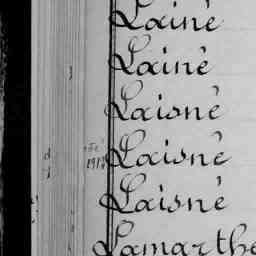 Lainé
Lainé
Laisné
Laisné
Laisné
Lamarthe